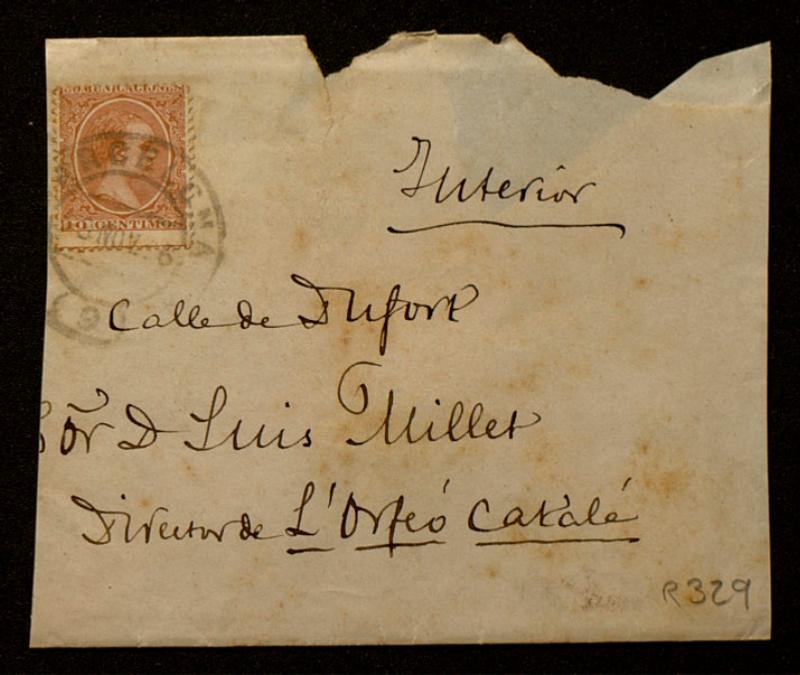 COMUNICACIONES
10 CENTIMOS
BARCELONA
NOV.
Interior
Calle de Dufort
Sõr D Luis Millet
Director de L' Orfeó Catalá
R329